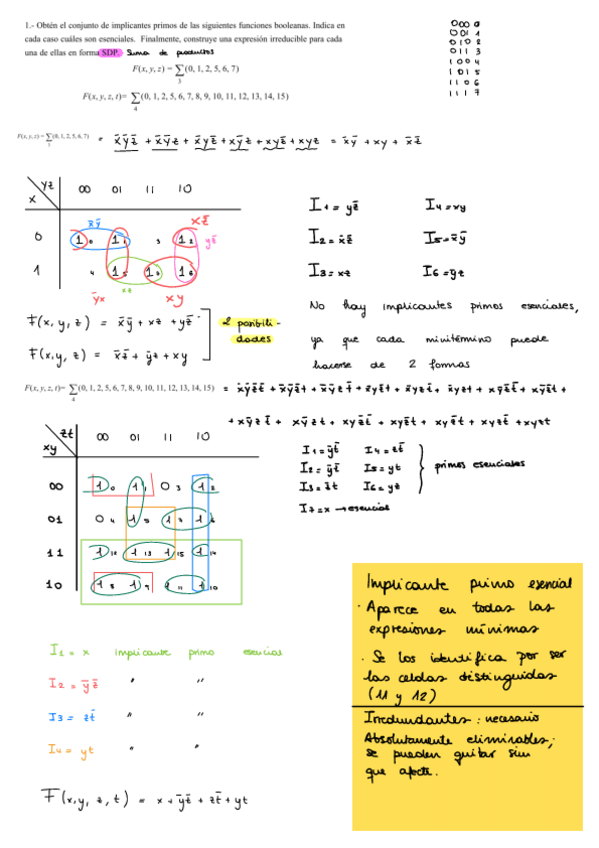 1.- Obtén el conjunto de implicantes primos de las siguientes funciones booleanas. Indica en
cada caso cuáles son esenciales. Finalmente, construye una expresión irreducible para cada
una de ellas en forma SDP. Suma de productos
F(x, y, z) = ∑(0, 1, 2, 5, 6, 7)
3
F(x, y, z, t)= ∑(0, 1, 2, 5, 6, 7, 8, 9, 10, 11, 12, 13, 14, 15)
4
000 0
001 1
010 2
011 3
100 4
101 5
110 6
111 7
F(x, y, z) = ∑(0, 1, 2, 5, 6, 7) = x̄ȳz̄ + x̄ȳz + x̄yz̄ + xȳz + xyz̄ + xyz = x̄ȳ + xy + x̄z̄
yz 00 01 11 10
x
x̄ȳ xz̄
0 1 0 1 1 3 1 2 yz̄
1 4 1 5 1 7 1 6
xz
ȳx xy
I1 = yz̄ I4 = xy
I2 = x̄z̄ I5 = x̄ȳ
I3 = xz I6 = ȳz
No hay implicantes primos esenciales,
ya que cada minitérmino puede
hacerse de 2 formas
F(x, y, z) = x̄ȳ + xz + yz̄
2 posibili-
dades
F(x, y, z) = x̄z̄ + ȳz + xy
F(x, y, z, t)= ∑(0, 1, 2, 5, 6, 7, 8, 9, 10, 11, 12, 13, 14, 15)
4
zt 00 01 11 10
xy
00 1 0 1 1 0 3 1 2
01 0 4 1 5 1 7 1 6
11 1 12 1 13 1 15 1 14
10 1 8 1 9 1 11 1 10
I4 = zt̄
I5 = yt
I6 = yz
primos esenciales
I7 = x → esencial
I1 = x implicante primo esencial
I2 = ȳz̄ " "
I3 = zt̄ " "
I4 = yt " "
F(x,y,z,t) = x + ȳz̄ + zt̄ + yt
Implicante primo esencial
· Aparece en todas las
expresiones mínimas
· Se los identifica por ser
las celdas distinguidas
(11 y 12)
Irredundantes: necesario
Absolutamente eliminables;
se pueden quitar sin
que afecte.